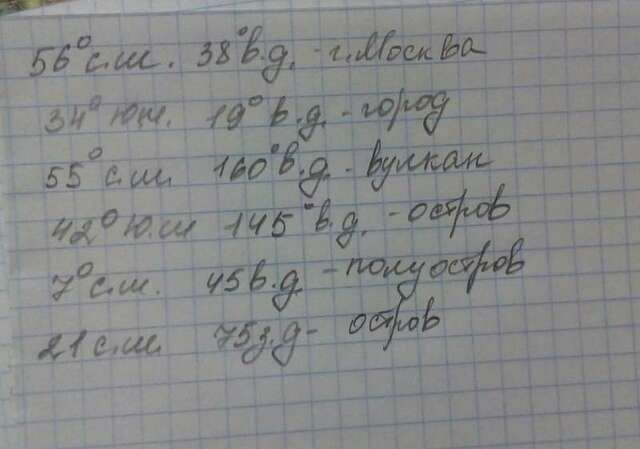 56° с.ш. 38° в.д. - г. Москва
34° ю.ш. 19° в.д. - город
55° с.ш. 160° в.д. - вулкан
42° ю.ш 145° в.д. - остров
7° с.ш. 45 в.д. - полуостров
21 с.ш. 75 з.д - остров